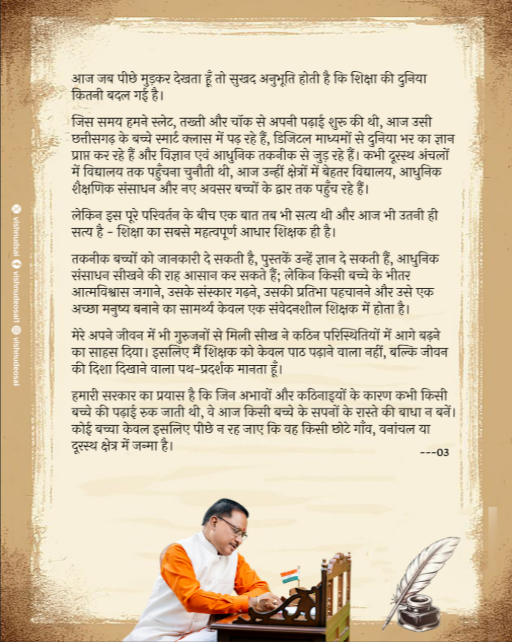 आज जब पीछे मुड़कर देखता हूँ तो सुखद अनुभूति होती है कि शिक्षा की दुनिया
कितनी बदल गई है।
जिस समय हमने स्लेट, तख्ती और चॉक से अपनी पढ़ाई शुरु की थी, आज उसी
छत्तीसगढ़ के बच्चे स्मार्ट क्लास में पढ़ रहे हैं, डिजिटल माध्यमों से दुनिया भर का ज्ञान
प्राप्त कर रहे हैं और विज्ञान एवं आधुनिक तकनीक से जुड़ रहे हैं। कभी दूरस्थ अंचलों
में विद्यालय तक पहुँचना चुनौती थी, आज उन्हीं क्षेत्रों में बेहतर विद्यालय, आधुनिक
शैक्षणिक संसाधन और नए अवसर बच्चों के द्वार तक पहुँच रहे हैं।
लेकिन इस पूरे परिवर्तन के बीच एक बात तब भी सत्य थी और आज भी उतनी ही
सत्य है - शिक्षा का सबसे महत्वपूर्ण आधार शिक्षक ही है।
तकनीक बच्चों को जानकारी दे सकती है, पुस्तकें उन्हें ज्ञान दे सकती हैं, आधुनिक
संसाधन सीखने की राह आसान कर सकते हैं; लेकिन किसी बच्चे के भीतर
आत्मविश्वास जगाने, उसके संस्कार गढ़ने, उसकी प्रतिभा पहचानने और उसे एक
अच्छा मनुष्य बनाने का सामर्थ्य केवल एक संवेदनशील शिक्षक में होता है।
मेरे अपने जीवन में भी गुरुजनों से मिली सीख ने कठिन परिस्थितियों में आगे बढ़ने
का साहस दिया। इसलिए मैं शिक्षक को केवल पाठ पढ़ाने वाला नहीं, बल्कि जीवन
की दिशा दिखाने वाला पथ-प्रदर्शक मानता हूँ।
हमारी सरकार का प्रयास है कि जिन अभावों और कठिनाइयों के कारण कभी किसी
बच्चे की पढ़ाई रुक जाती थी, वे आज किसी बच्चे के सपनों के रास्ते की बाधा न बनें।
कोई बच्चा केवल इसलिए पीछे न रह जाए कि वह किसी छोटे गाँव, वनांचल या
दूरस्थ क्षेत्र में जन्मा है।
---03
vishnudsai
vishnudeosai1
vishnudeosai